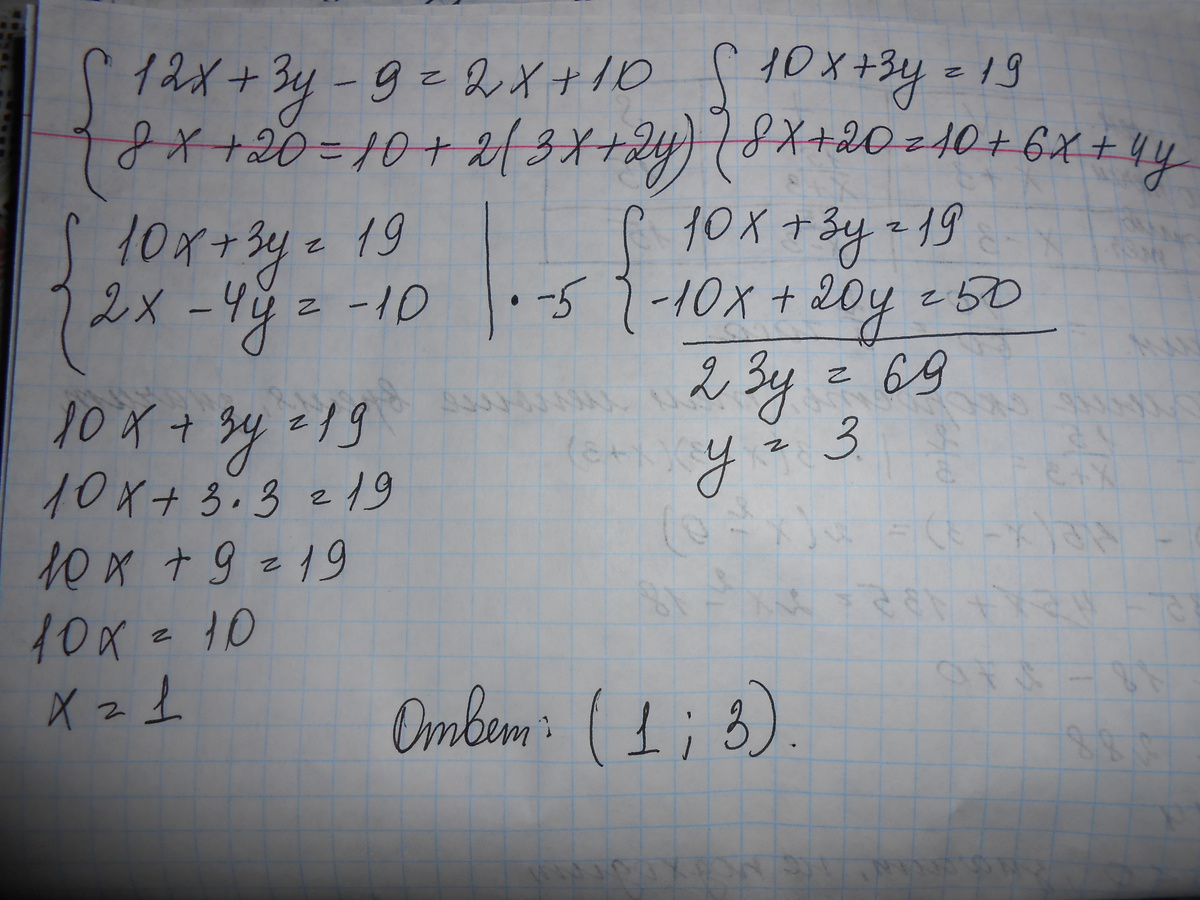 12x + 3y - 9 = 2x + 10
8x + 20 = 10 + 2(3x + 2y)
10x + 3y = 19
8x + 20 = 10 + 6x + 4y
10x + 3y = 19
2x - 4y = -10 | · -5
10x + 3y = 19
-10x + 20y = 50
23y = 69
y = 3
10x + 3y = 19
10x + 3 · 3 = 19
10x + 9 = 19
10x = 10
x = 1
Ответ: (1 ; 3).